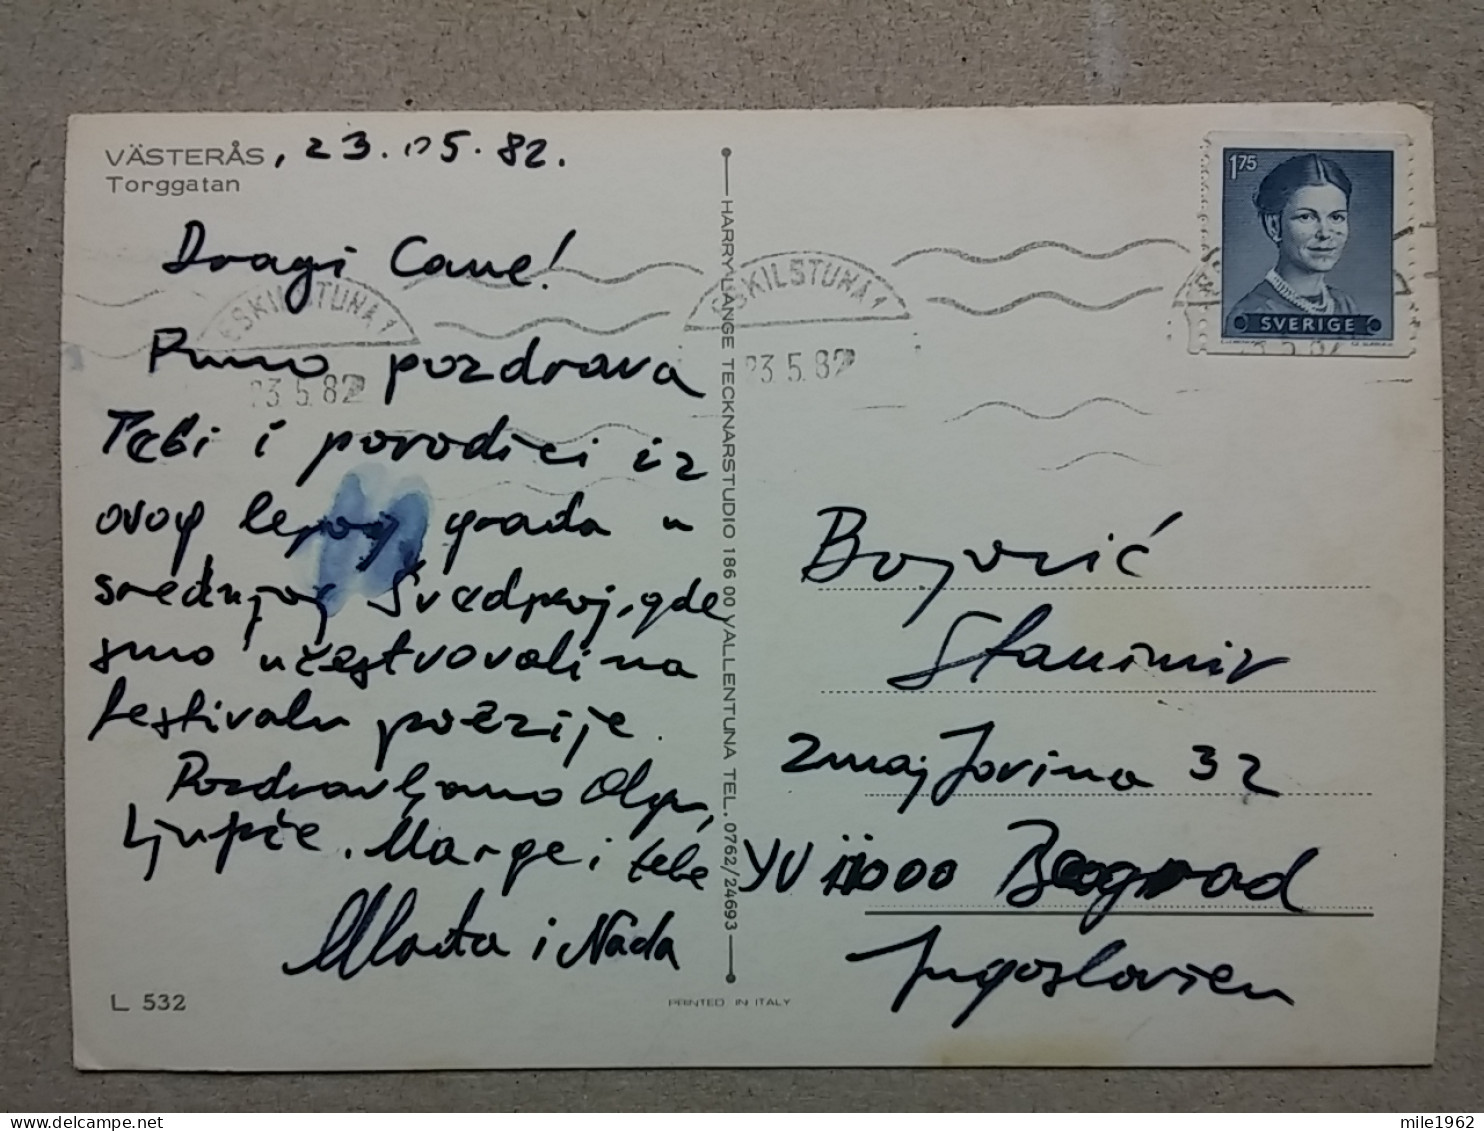 VÄSTERÅS, 23.05.82.
Torggatan
Dragi Cane!
Puno pozdrava
Tebi i porodici iz
ovog lepog grada u
srednjoj Švedskoj, gde
smo učestvovali na
festivalu poezije.
Pozdravljamo Olgu,
Ljupče, Marge i tebe
Vlasta i Nada
L 532
HARRY LANGE TECKNARSTUDIO 186 00 VALLENTUNA TEL. 0762/24693
PRINTED IN ITALY
ESKILSTUNA 1
23.5.82
ESKILSTUNA 1
23.5.82
1.75
SVERIGE
23.5.82
Bojović
Stanimir
Zmaj Jovina 32
YU 11000 Beograd
Jugoslavien
mile1962